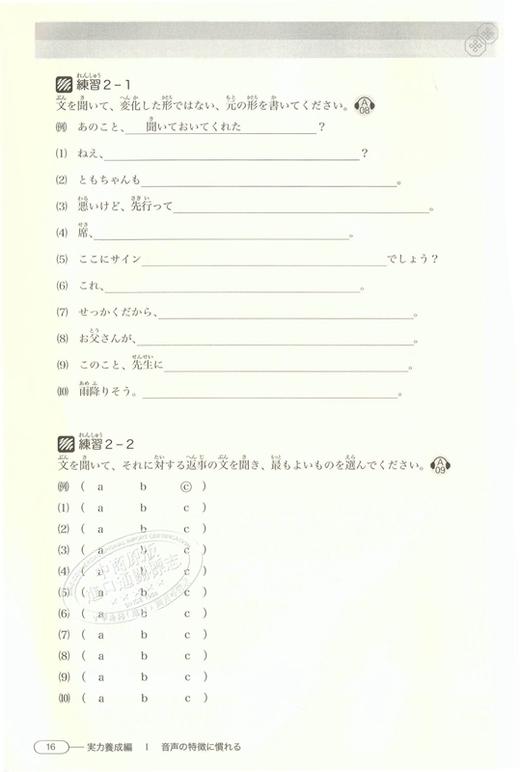 練習2-1
文を聞いて、変化した形ではない、元の形を書いてください。 A08
(例) あのこと、 聞いておいてくれた ?
(1) ねえ、 ?
(2) ともちゃんも 。
(3) 悪いけど、先行って 。
(4) 席、 。
(5) ここにサイン でしょう?
(6) これ、 。
(7) せっかくだから、 。
(8) お父さんが、 。
(9) このこと、先生に 。
(10) 雨降りそう。 。
練習2-2
文を聞いて、それに対する返事の文を聞き、最もよいものを選んでください。 A09
(例) ( a b ⓒ )
(1) ( a b c )
(2) ( a b c )
(3) ( a b c )
(4) ( a b c )
(5) ( a b c )
(6) ( a b c )
(7) ( a b c )
(8) ( a b c )
(9) ( a b c )
(10) ( a b c )
16 実力養成編 I 音声の特徴に慣れる